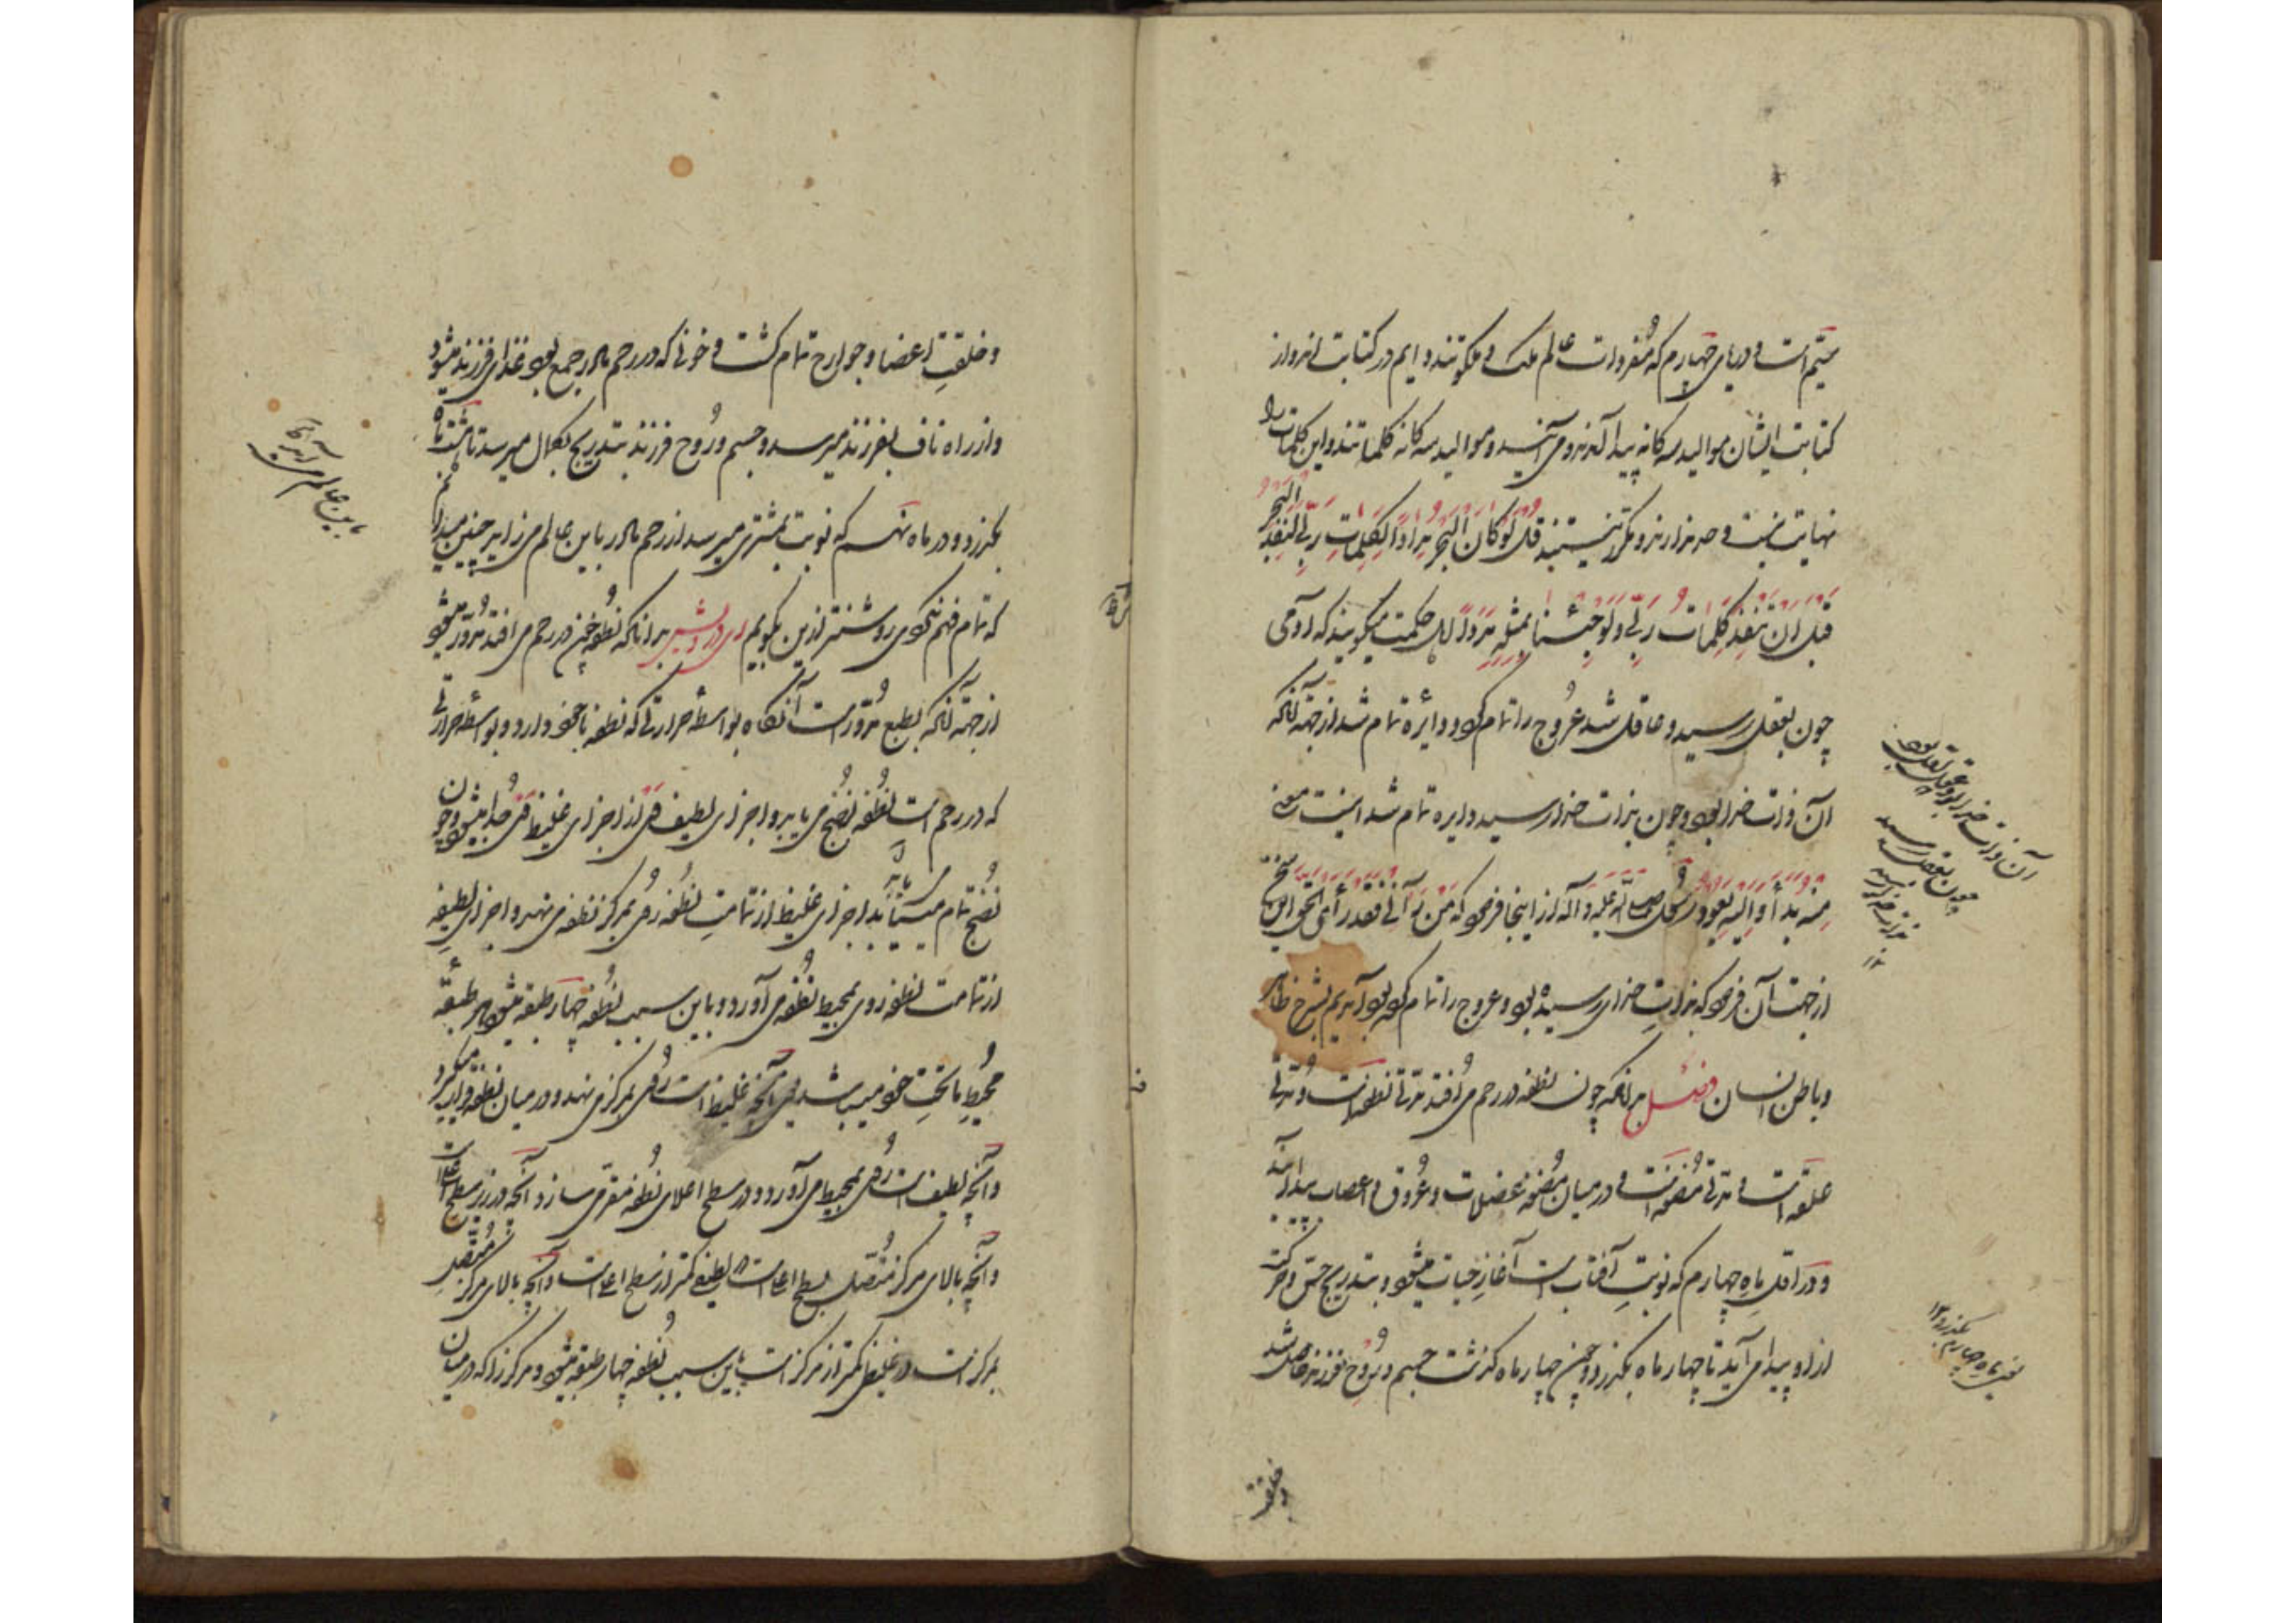 میم است و دریای چهارم که مفردات عالم ملک و ملکوتند دایم در کتابت‌اند و از
کتابت ایشان موالید سه گانه پیدا آمدند و می آیند و موالید سه گانه کلماتند و این کلمات را
نهایت نیست و صد هزارند و مکرر نیستند قل لو کان البحر مدادا لکلمات ربی لنفد البحر
قبل ان تنفد کلمات ربی و لو جئنا بمثله مددا اهل حکمت میگویند که آدمی
چون بعقل رسید و عاقل شد عروج را تمام کرد و دائره تمام شد از جهت آنکه
آن ذات خدا بود و چون بذات خدا رسید دایره تمام شد اینست معنی
منه بدأ و الیه یعود و رسول صلی الله علیه و آله از اینجا فرمود که من رآنی فقد رأی الحق این سخن
از جهت آن فرمود که بذات خدای رسیده بود و عروج را تمام کرده بود آمدیم بشرح ظاهر
و باطن انسان فصل بدانکه چون نطفه در رحم می افتد مدتی نطفه است و مدتی
علقه است و مدتی مضغه است و در میان مضغه عضلات و عروق و اعصاب پیدا آید
و در اول ماه چهارم که نوبت آفتاب است آغاز حیات میشود و بتدریج حس و حرکت
از او پیدا می آید تا چهار ماه بگذرد و چون چهار ماه گذشت جسم و روح فرزند حاصل شد
آن ذات خدا بود
چون بعقل رسید
بذات خدا رسید
یعنی ماه چهارم بگذرد ۱۲
و خلقت
و خلقت اعضا و جوارح تمام گشت و خونی که در رحم مادر جمع بود غذای فرزند میشود
و از راه ناف بفرزند میرسد و جسم و روح فرزند بتدریج بکمال میرسد تا هشت ماه
بگذرد و در ماه نهم که نوبت بمشتری میرسد از رحم مادر باین عالم می زاید چنین میدانم
که تمام فهم نکردی روشنتر ازین بگویم ای درویش بدانکه نطفه چون در رحم می افتد مدور میشود
از جهت آنکه آب بطبع مدور است آنگاه بواسطه حرارتی که نطفه با خود دارد و بواسطه حرارتی
که در رحم است نطفه نضج می یابد و اجزای لطیف وی از اجزای غلیظ وی جدا میشود و چون
نضج تمام می‌یابد اجزای غلیظ از تمامت نطفه روی بمرکز نطفه می نهد و اجزای لطیفه
از تمامت نطفه روی بمحیط نطفه می آورد و باین سبب نطفه چهار طبقه میشود هر طبقه
محیط ماتحت خود میباشد یعنی آنچه غلیظ است روی بمرکز می نهد و در میان نطفه قرار میگیرد
و آنچه لطیف است روی بمحیط می آورد و در سطح اعلای نطفه مقر می سازد و آنچه در زیر سطح اعلاست
و آنچه بالای مرکز متصل بسطح اعلی است در لطیفی کمتر از سطح اعلی است و آنچه بالای مرکز متصل
بمرکز است در غلیظی کمتر از مرکز است باین سبب نطفه چهار طبقه میشود و مرکز را که در میان
باین عالم می آید